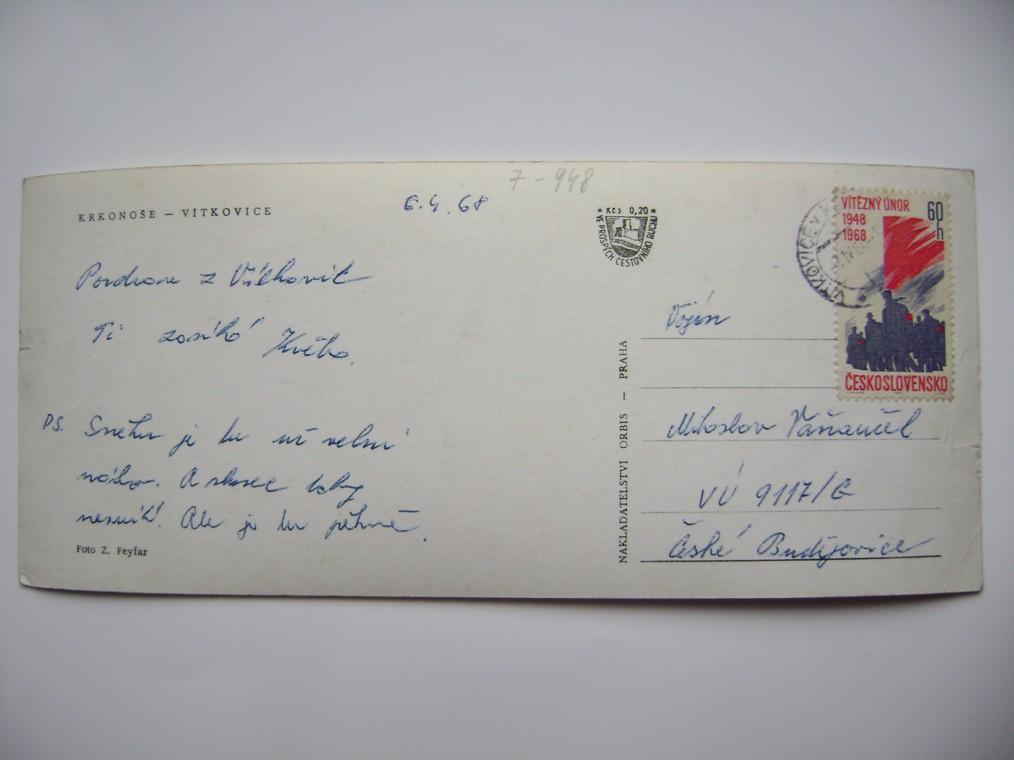 7-948
KRKONOŠE – VÍTKOVICE
6.4.68
Kčs 0,20
VE PROSPĚCH CESTOVNÍHO RUCHU
VÍTĚZNÝ ÚNOR
1948
1968
60
h
ČESKOSLOVENSKO
VÍTKOVICE V
Pozdrav z Vítkovic
Ti zasílá Květa.
PS. Sněhu je tu už velmi
málo. A slunce taky
nesvítí. Ale je tu pěkně.
Foto Z. Feyfar
NAKLADATELSTVÍ ORBIS – PRAHA
Vojín
Miloslav
VÚ 9117/G
České Budějovice